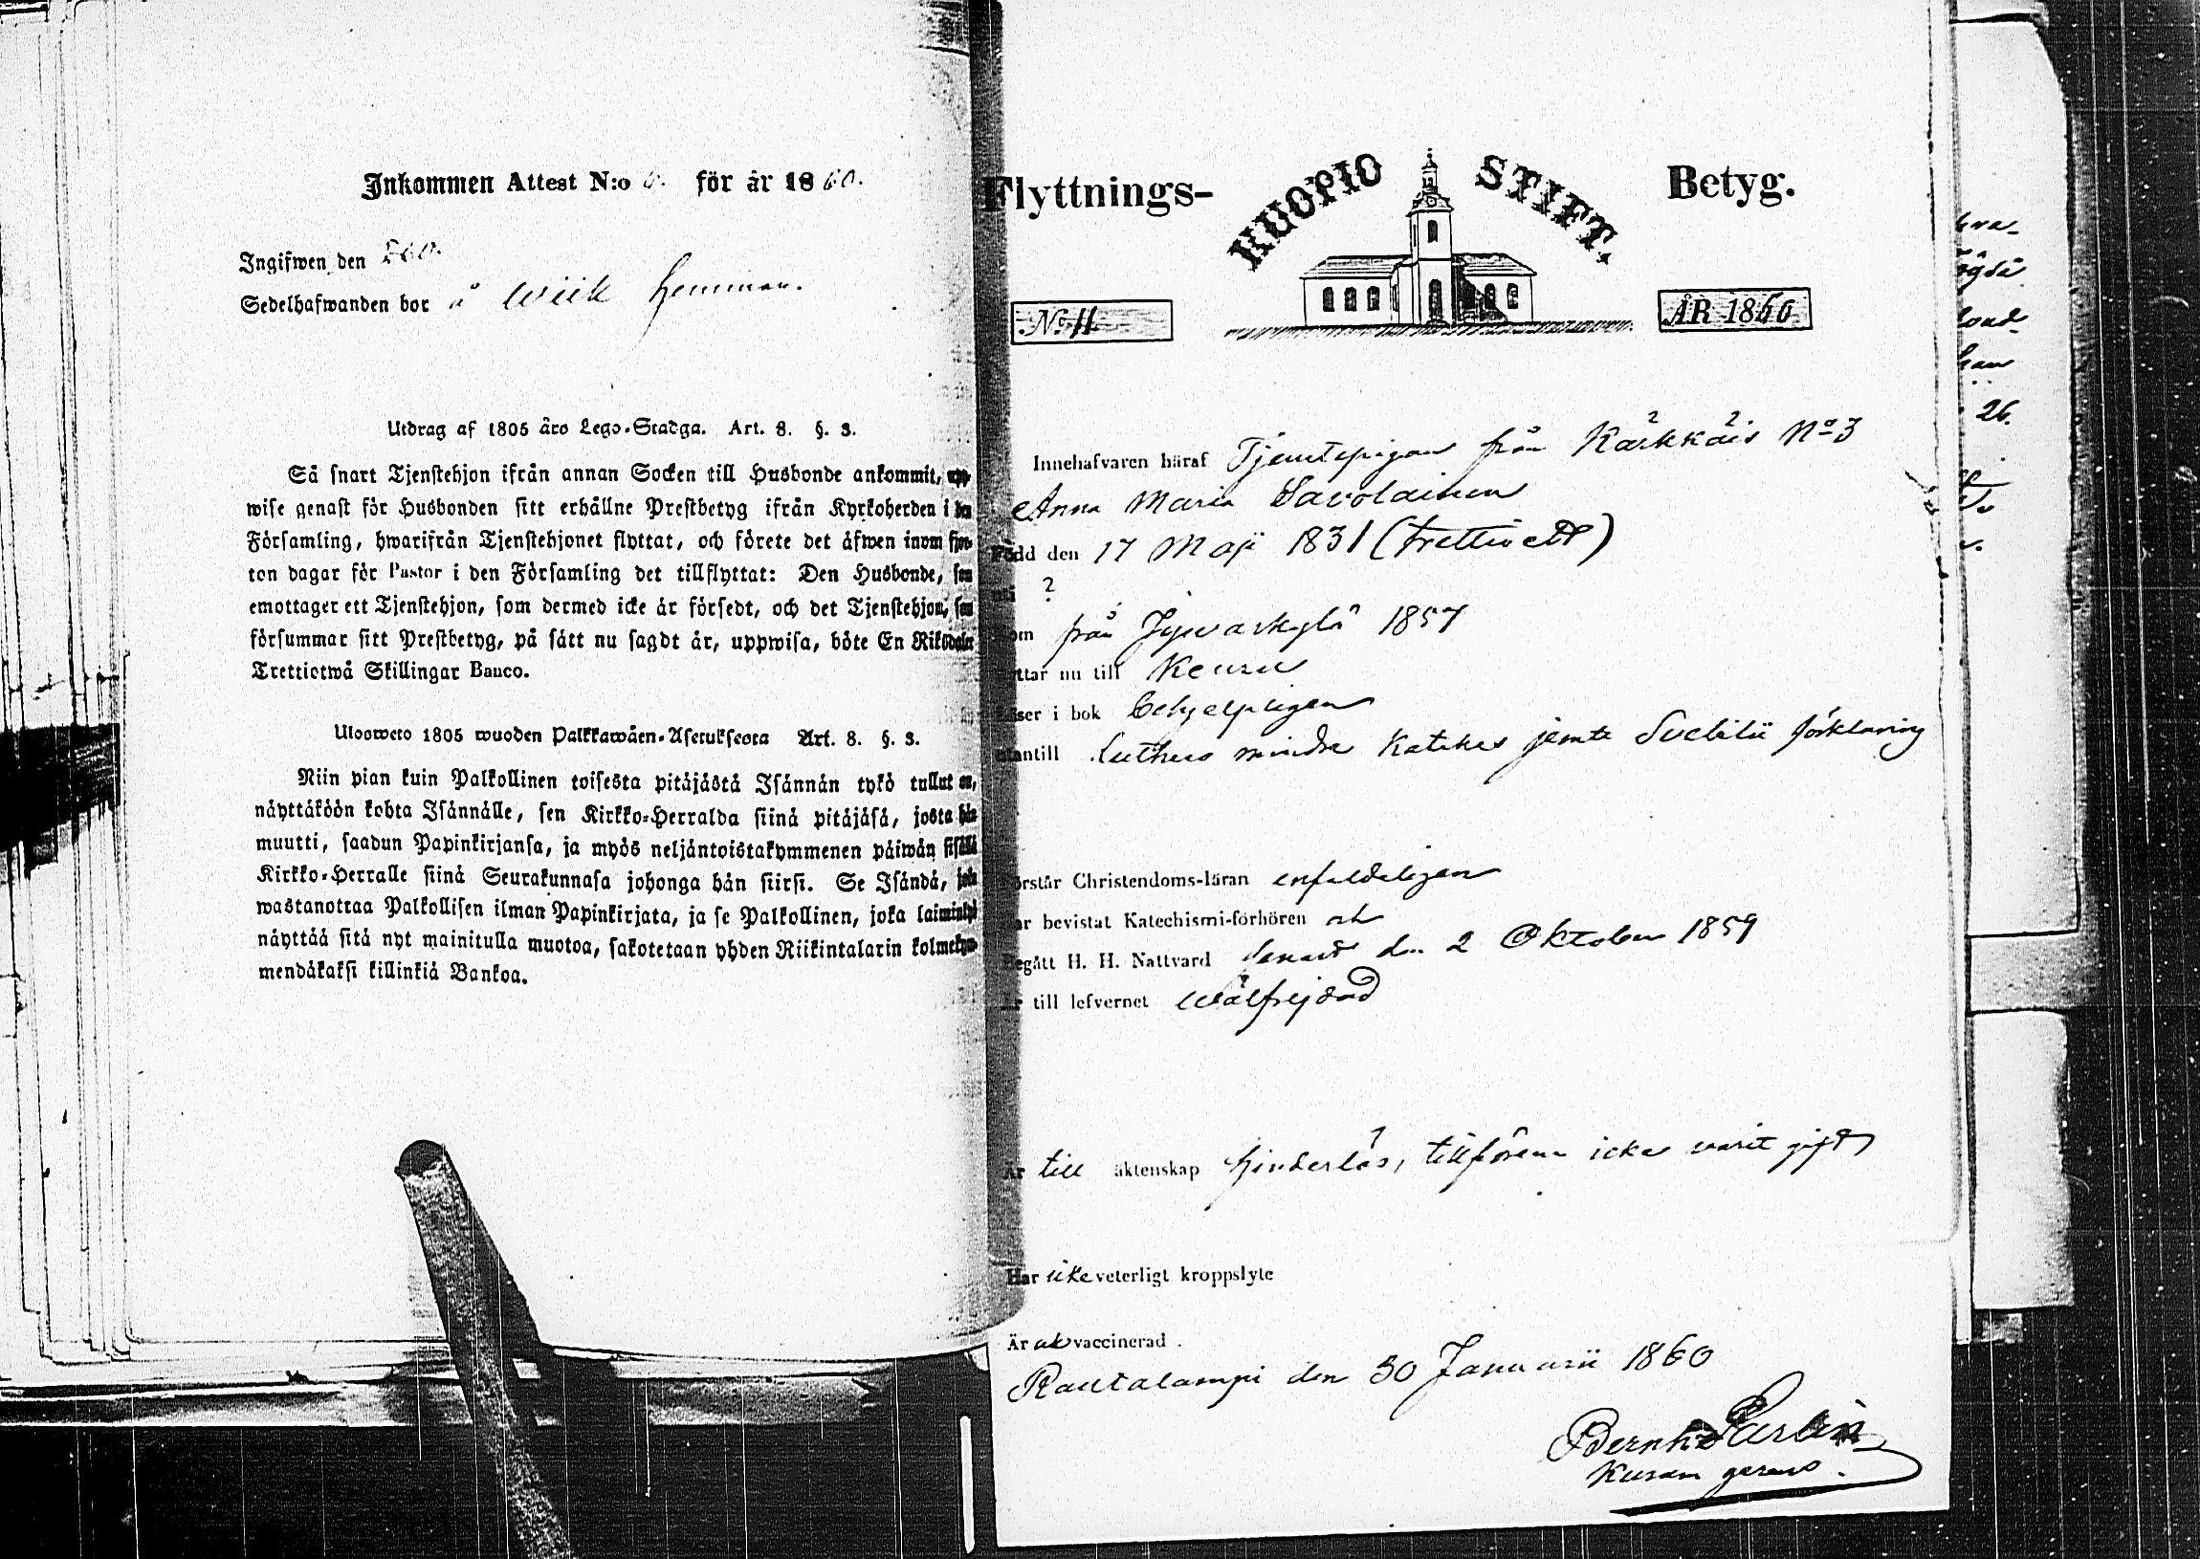 Inkommen Attest N:o 6. för år 1860.
Ingifwen den
Sedelhafwanden bor å Wiik hemman.
Utdrag af 1805 års Lego-Stadga. Art. 8. §. 3.
Så snart Tjenstehjon ifrån annan Socken till Husbonde ankommit, upp-
wise genast för Husbonden sitt erhållne Prestbetyg ifrån Kyrkoherden i den
Församling, hwarifrån Tjenstehjonet flyttat, och förete det äfwen inom fjor-
ton dagar för Pastor i den Församling det tillflyttat: Den Husbonde, som
emottager ett Tjenstehjon, som dermed icke är försedt, och det Tjenstehjon, som
försummar sitt Prestbetyg, på sätt nu sagdt är, uppwisa, böte En Riksdaler
Trettiotwå Skillingar Banco.
Ulosweto 1805 wuoden Palkkawäen-Asetuksesta Art. 8. §. 3.
Niin pian kuin Palkollinen toisesta pitäjästä Isännän tykö tullut on,
näyttäköön kohta Isännälle, sen Kirkko-Herralda siinä pitäjäsä, josta hän
muutti, saadun Papinkirjansa, ja myös neljäntoistakymmenen päiwän sisällä
Kirkko-Herralle siinä Seurakunnasa johonga hän siirsi. Se Isändä, joka
wastanottaa Palkollisen ilman Papinkirjata, ja se Palkollinen, joka laiminlyö
näyttää sitä nyt mainitulla muotoa, sakotetaan yhden Riikintalarin kolmekym-
mendäkaksi killinkiä Bankoa.
Flyttnings- HUOPIO STIFT. Betyg.
No 11. ÅR 1860
Innehafvaren häraf Tjenstepigan från Kärkkäis No 3
Anna Maria Savolainen
Född den 17 Maji 1831 (trettioett)
uti ?
Kom från Jyvaskylä 1857
Flyttar nu till Keuru
Läser i bok behjelpligen
utantill Luthers mindre Kateches jemte Svebilii förklaring
Förstår Christendoms-läran enfaldeligen
Har bevistat Katechismi-förhören ock
Begått H. H. Nattvard senast den 2 Oktober 1859
Är till lefvernet wälfrejdad
Är till äktenskap hinderlös, tillförene icke varit gift
Har icke veterligt kroppslyte
Är ock vaccinerad.
Rautalampi den 30 Januarii 1860